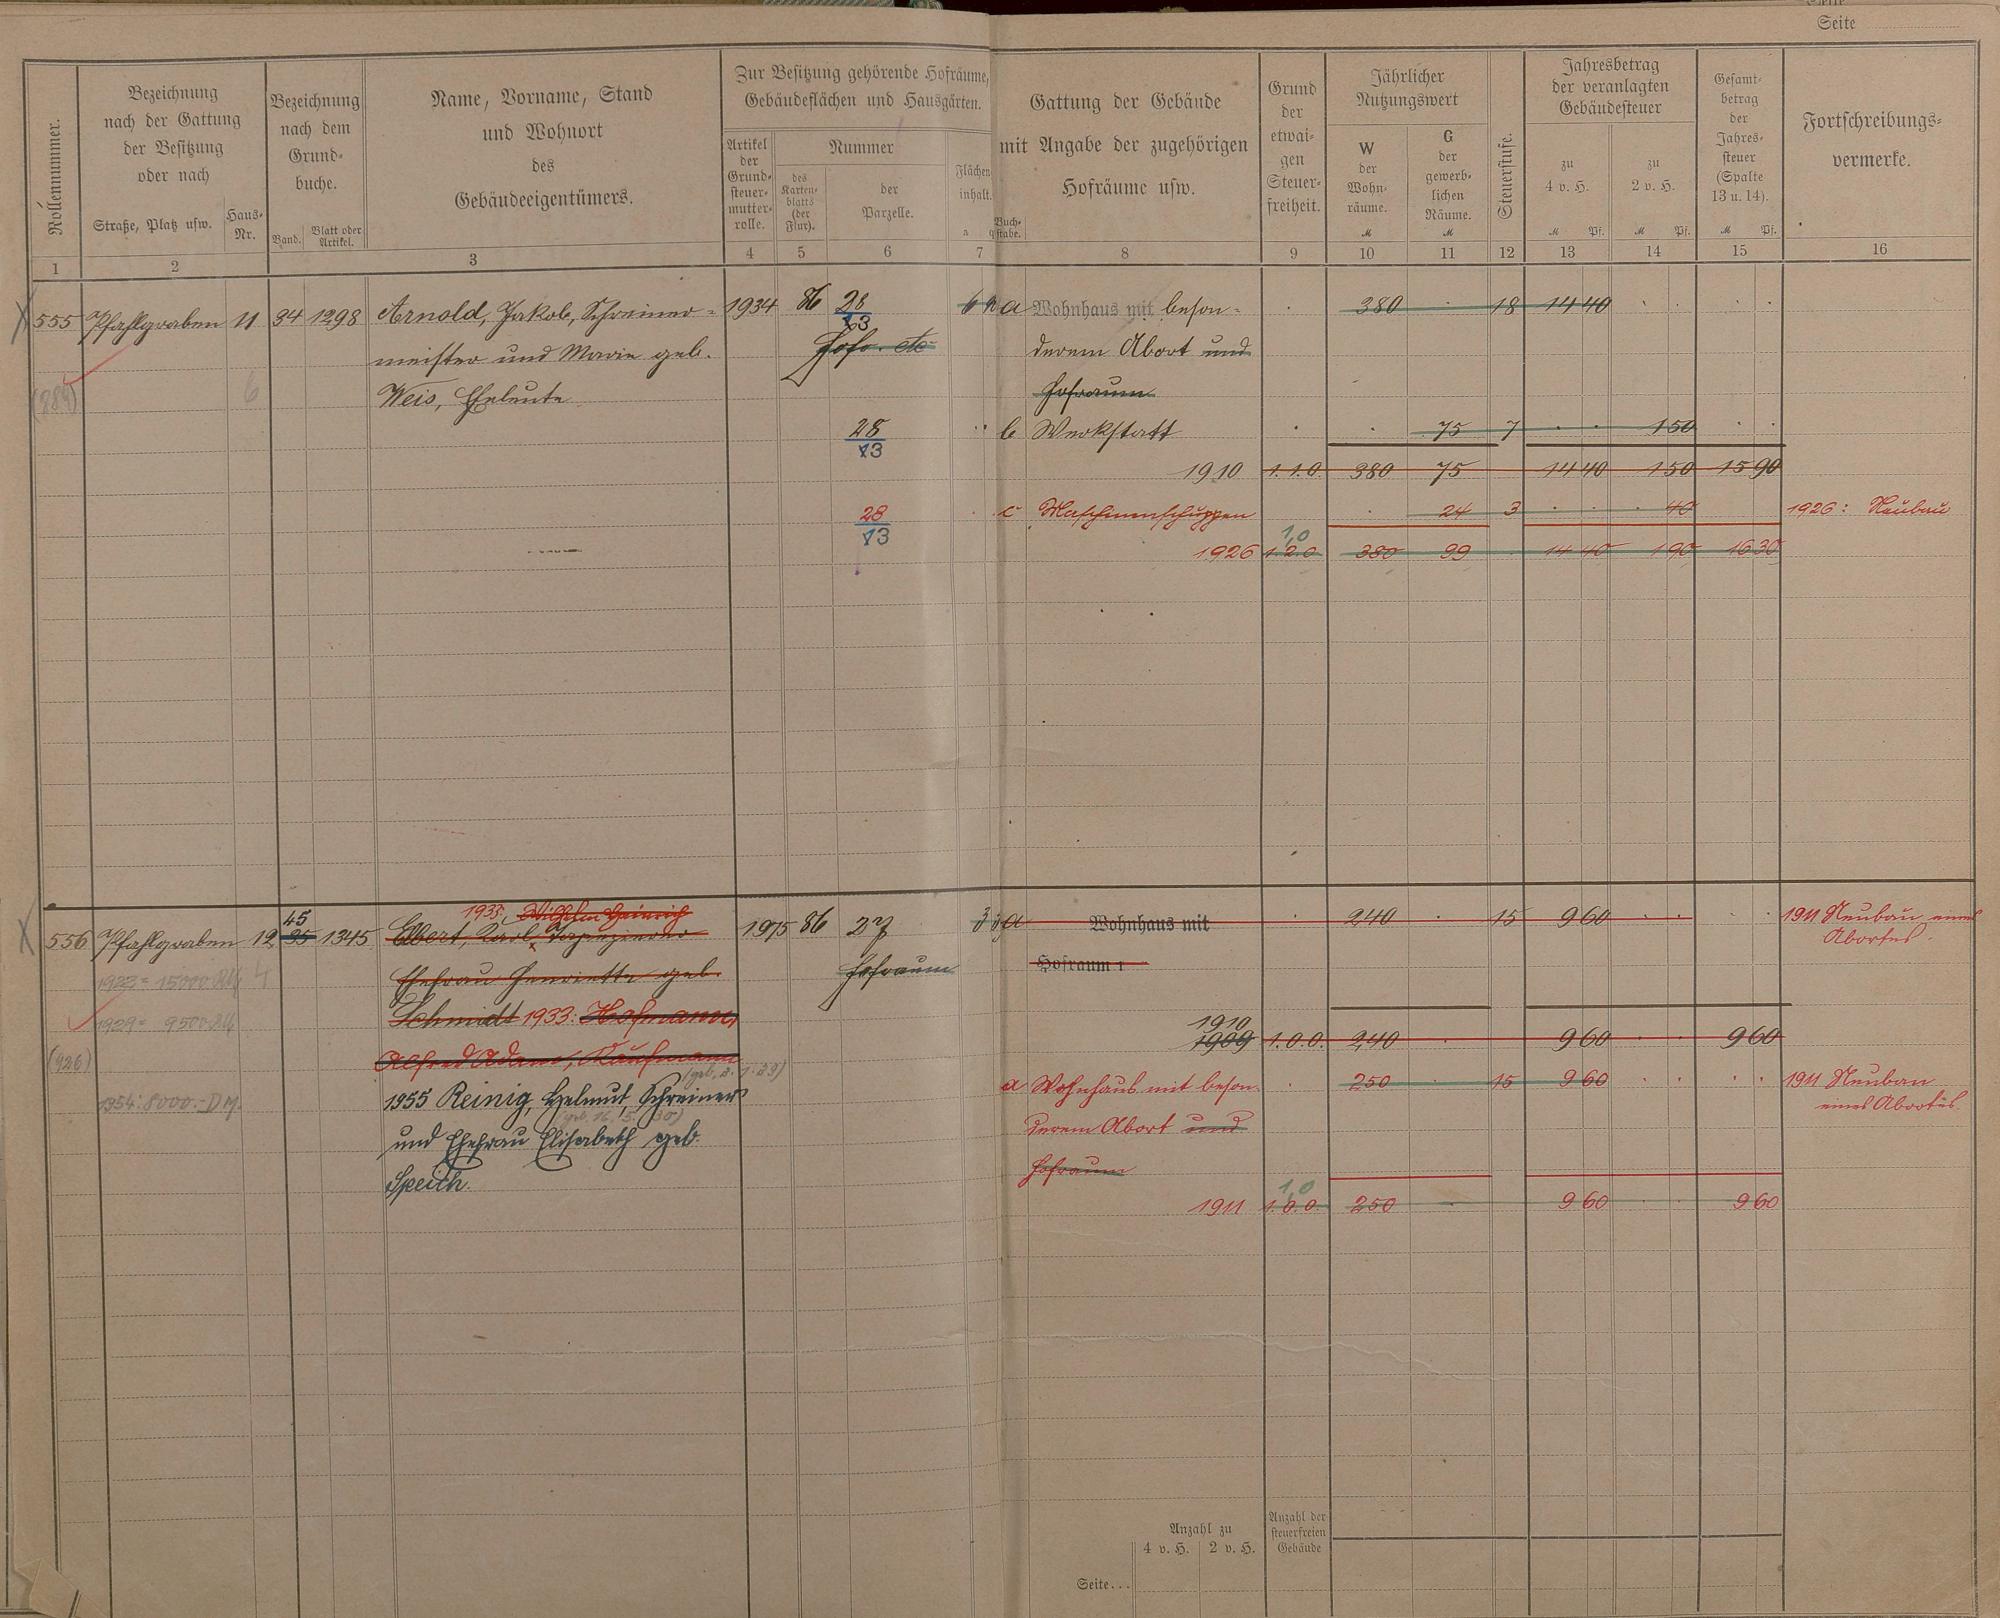 Seite
Rollennummer.
Bezeichnung
nach der Gattung
der Besitzung
oder nach
Straße, Platz usw.
Haus-
Nr.
Bezeichnung
nach dem
Grund-
buche.
Band.
Blatt oder
Artikel.
Name, Vorname, Stand
und Wohnort
des
Gebäudeeigentümers.
Zur Besitzung gehörende Hofräume,
Gebäudeflächen und Hausgärten.
Artikel
der
Grund-
steuer-
mutter-
rolle.
Nummer
des
Karten-
blatts
(der
Flur).
der
Parzelle.
Flächen
inhalt.
a
Buch-
stabe.
Gattung der Gebäude
mit Angabe der zugehörigen
Hofräume usw.
Grund
der
etwai-
gen
Steuer-
freiheit.
Jährlicher
Nutzungswert
W
der
Wohn-
räume.
M
G
der
gewerb-
lichen
Räume.
M
Steuerstufe.
Jahresbetrag
der veranlagten
Gebäudesteuer
zu
4 v. H.
M Pf.
zu
2 v. H.
M Pf.
Gesamt-
betrag
der
Jahres-
steuer
(Spalte
13 u. 14).
M Pf.
Fortschreibungs-
vermerke.
1 2 3 4 5 6 7 8 9 10 11 12 13 14 15 16
555 Pfahlgraben 11 34 1298 Arnold, Jakob, Schreiner- 1934 86 28 a Wohnhaus mit beson- 380 18 14 40
13
meister und Marie geb. Hofr. etc derem Abort und
6 Weis, Eheleute Hofraum
28 b Werkstatt 75 7 1 50
13
1910 1.1.0. 380 75 14 40 1 50 15 90
28 c Maschinenschuppen 24 3 40 1926: Neubau
13
1,0
1926 1.2.0 380 99 14 40 1 90 16 30
45 1935, Wilhelm Heinrich
556 Pfahlgraben 12 35 1345 Elbert, Karl, Tapezierer 1975 86 27 a Wohnhaus mit 240 15 9 60 1911 Neubau eines
Abortes.
1923 = 15000 RM 4 Ehefrau Henriette geb. Hofraum Hofraum
1929 = 9500 RM Schmidt 1933: Hofmann,
1910
1909 1.0.0. 240 9 60 9 60
(926) Alfred Adam, Kaufmann
a Wohnhaus mit beson- 250 15 9 60 1911 Neubau
eines Abortes.
1954: 8000.- DM. 1955 Reinig, Helmut, Schreiner
derem Abort und
und Ehefrau Elisabeth geb.
Hofraum
Speich.
1,0
1911 1.0.0. 250 9 60 9 60
Anzahl zu
4 v. H. 2 v. H.
Anzahl der
steuerfreien
Gebäude
Seite...